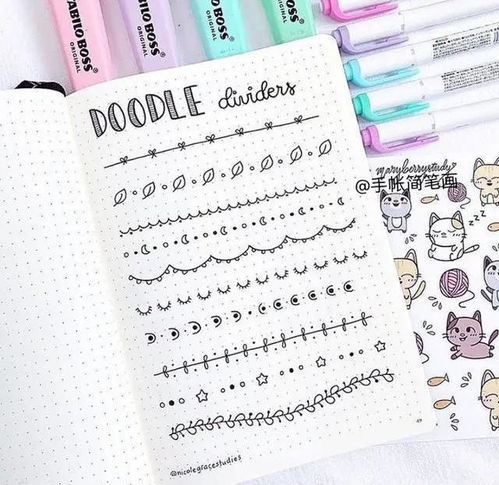 STABILO BOSS
ORIGINAL
STABILO BOSS
ORIGINAL
BOSS
ORIGINAL
DOODLE dividers
maryberrystudy
@手帐简笔画
zzz
@nicolegracestudies